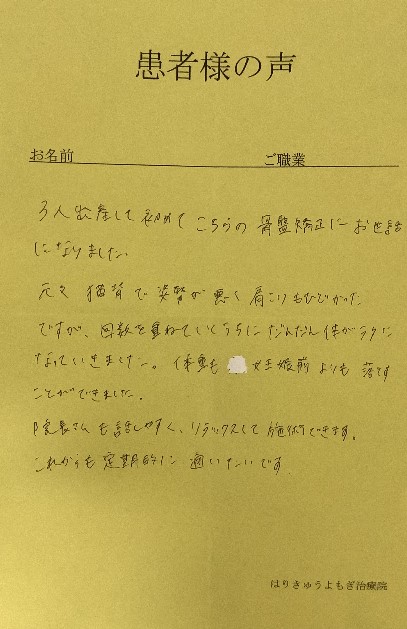 患者様の声
お名前 ご職業
3人出産して初めてこちらの骨盤矯正にお世話
になりました。
元々猫背で姿勢が悪く肩こりもひどかった
ですが、回数を重ねていくうちにだんだん体がラクに
なっていきました。体重も 妊娠前よりも落とす
ことができました。
院長さんも話しやすく、リラックスして施術できます。
これからも定期的に通いたいです。
はりきゅうよもぎ治療院